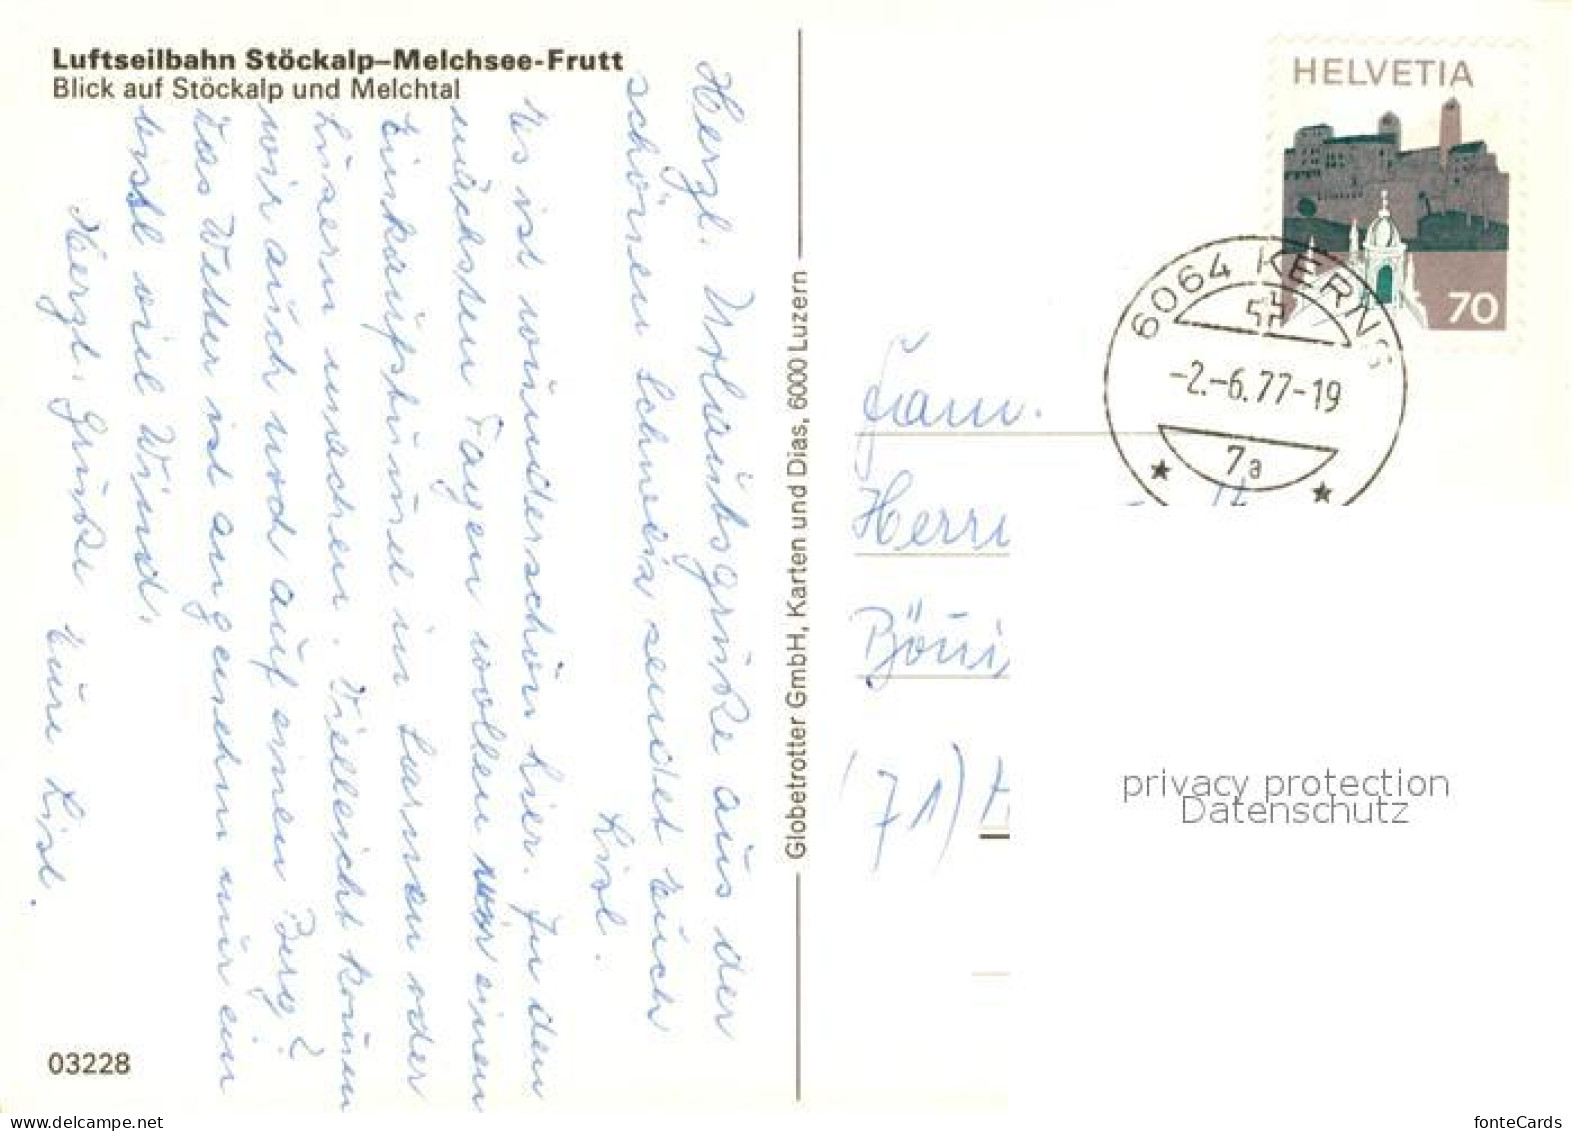 Luftseilbahn Stöckalp–Melchsee-Frutt
Blick auf Stöckalp und Melchtal
Herzl. Urlaubsgrüße aus der
schönen Schweiz sendet Euch
Lisl.
Es ist wunderschön hier. In den
nächsten Tagen wollen wir einen
Einkaufsbummel in Sarnen oder
Luzern machen. Vielleicht komm
wir auch noch auf einen Berg?
Das Wetter ist angenehm nur ein
bissl viel Wind.
Herzl. Grüße Eure Lisl.
03228
Globetrotter GmbH, Karten und Dias, 6000 Luzern
HELVETIA
70
6064 KERNS
-2.-6.77-19
7a
Fam.
Herr
(71)
privacy protection
Datenschutz
fonteCards